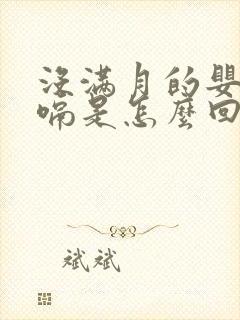 没满月的婴
嗝是怎麼回
斌斌